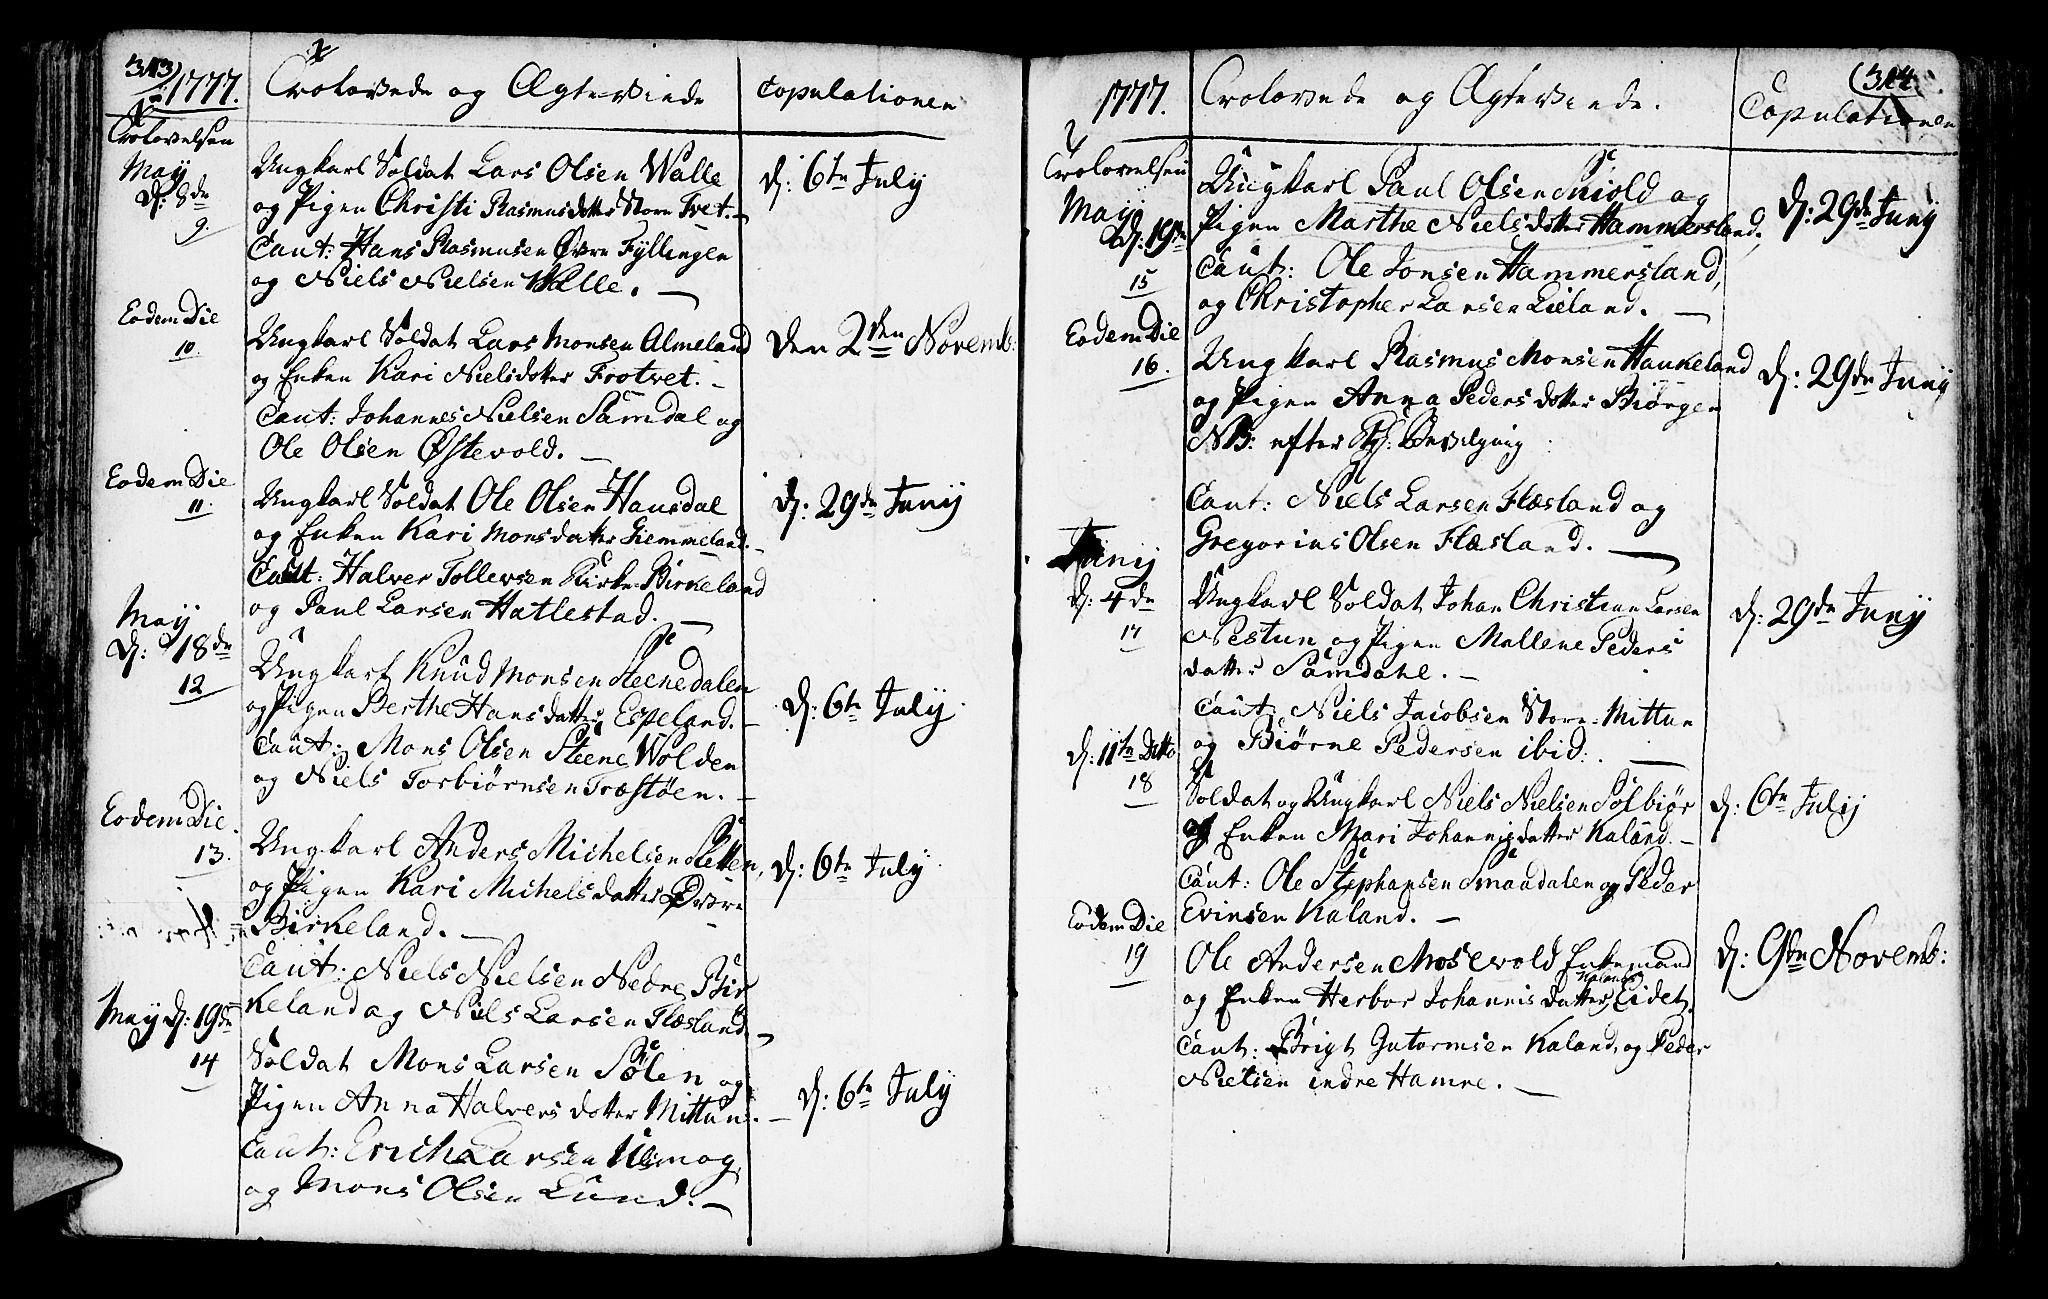 313)
1777.
Trolovede og Ægteviede
Copulationen
Trolovelsen
May
d: 8de
9.
Ungkarl Soldat Lars Olsen Walle
og Pigen Christi Rasmusdotter Store Tvet. -
Caut: Hans Rasmusen Øvre Fyllingen
og Niels Nielsen Walle. -
d: 6te July
Eodem Die
10.
Ungkarl Soldat Lars Monsen Almeland
og Enken Kari Nielsdotter Trotvet. -
Caut: Johannes Nielsen Samdal og
Ole Olsen Østevold. -
den 2den Novemb:
Eodem Die
11.
Ungkarl Soldat Ole Olsen Hausdal
og Enken Kari Monsdatter Hemmeland. -
Caut: Halver Tollevsen Kirke-Birkeland
og Paul Larsen Hatlestad. -
d: 29de Juny
May
d: 18de
12
Ungkarl Knud Monsen Steenedalen
og Pigen Berthe Hansdatter Espeland. -
Caut: Mons Olsen Steene Wolden
og Niels Torbiørnsen Træstøen. -
d: 6te July
Eodem Die.
13.
Ungkarl Anders Michelsen Sletten,
og Pigen Kari Michelsdatter Øvre
Birkeland. -
Caut: Niels Nielsen Nedre Bir
keland og Niels Larsen Flæsland. -
d: 6te July
May d: 19de
14
Soldat Mons Larsen Sølen og
Pigen Anna Halversdotter Mittun. -
Caut: Erich Larsen
og Mons Olsen Lund. -
d: 6te July
(314.
1777.
Trolovede og Ægteviede.
Copulationen
Trolovelsen
May
d: 19de
15
Ungkarl Paul Olsen Skiold og
Pigen Marthe Nielsdotter Hammersland.
Caut: Ole Jonsen Hammersland,
og Christopher Larsen Lieland. -
d: 29de Juny
Eodem Die
16.
Ungkarl Rasmus Monsen Haukeland
og Pigen Anna Pedersdotter Biørgen
NB: efter Bevilgning
Caut: Niels Larsen Flæsland og
Gregorius Olsen Flæsland. -
d: 29de Juny
Juny
d: 4de
17
Ungkarl Soldat Johan Christian Larsen
Nestun og Pigen Mallene Peders
datter Samdahl. -
Caut: Niels Jacobsen Store-Mittun
og Biørne Pedersen ibid: . -
d: 29de Juny
d: 11te Ditto
18
Soldat og Ungkarl Niels Nielsen Solbiør
og Enken Mari Johannisdatter Kaland. -
Caut: Ole Stephansen Smaadalen og Peder
Evinsen Kaland. -
d: 6te July
Eodem Die
19
Ole Andersen Mosevold Enkemand
og Enken Herbor Johannisdatter Kaland Eidet.
Caut: Brigt Gutormsen Kaland, og Peder
Nielsen indre Hamre. -
d: 9de Novemb: